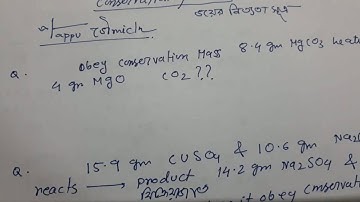 conservation
ভরের নিত্যতা সূত্র
tappu
Q. obey conservation Mass 8.4 gm MgCO3 heate
4 gm MgO CO2 ??
Q. 15.9 gm CUSO4 & 10.6 gm Na2
reacts → product 14.2 gm Na2SO4 &
it obey conservat